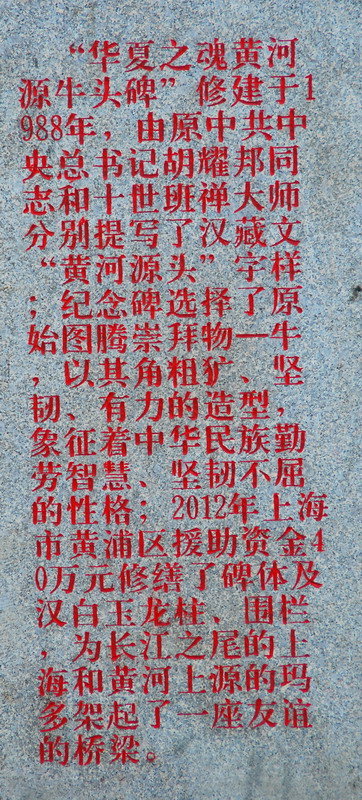 “华夏之魂黄河
源牛头碑”修建于1
988年，由原中共中
央总书记胡耀邦同
志和十世班禅大师
分别提写了汉藏文
“黄河源头”字样
；纪念碑选择了原
始图腾崇拜物—牛
，以其角粗犷、坚
韧、有力的造型，
象征着中华民族勤
劳智慧、坚韧不屈
的性格；2012年上海
市黄浦区援助资金4
0万元修缮了碑体及
汉白玉龙柱、围栏
，为长江之尾的上
海和黄河上源的玛
多架起了一座友谊
的桥梁。